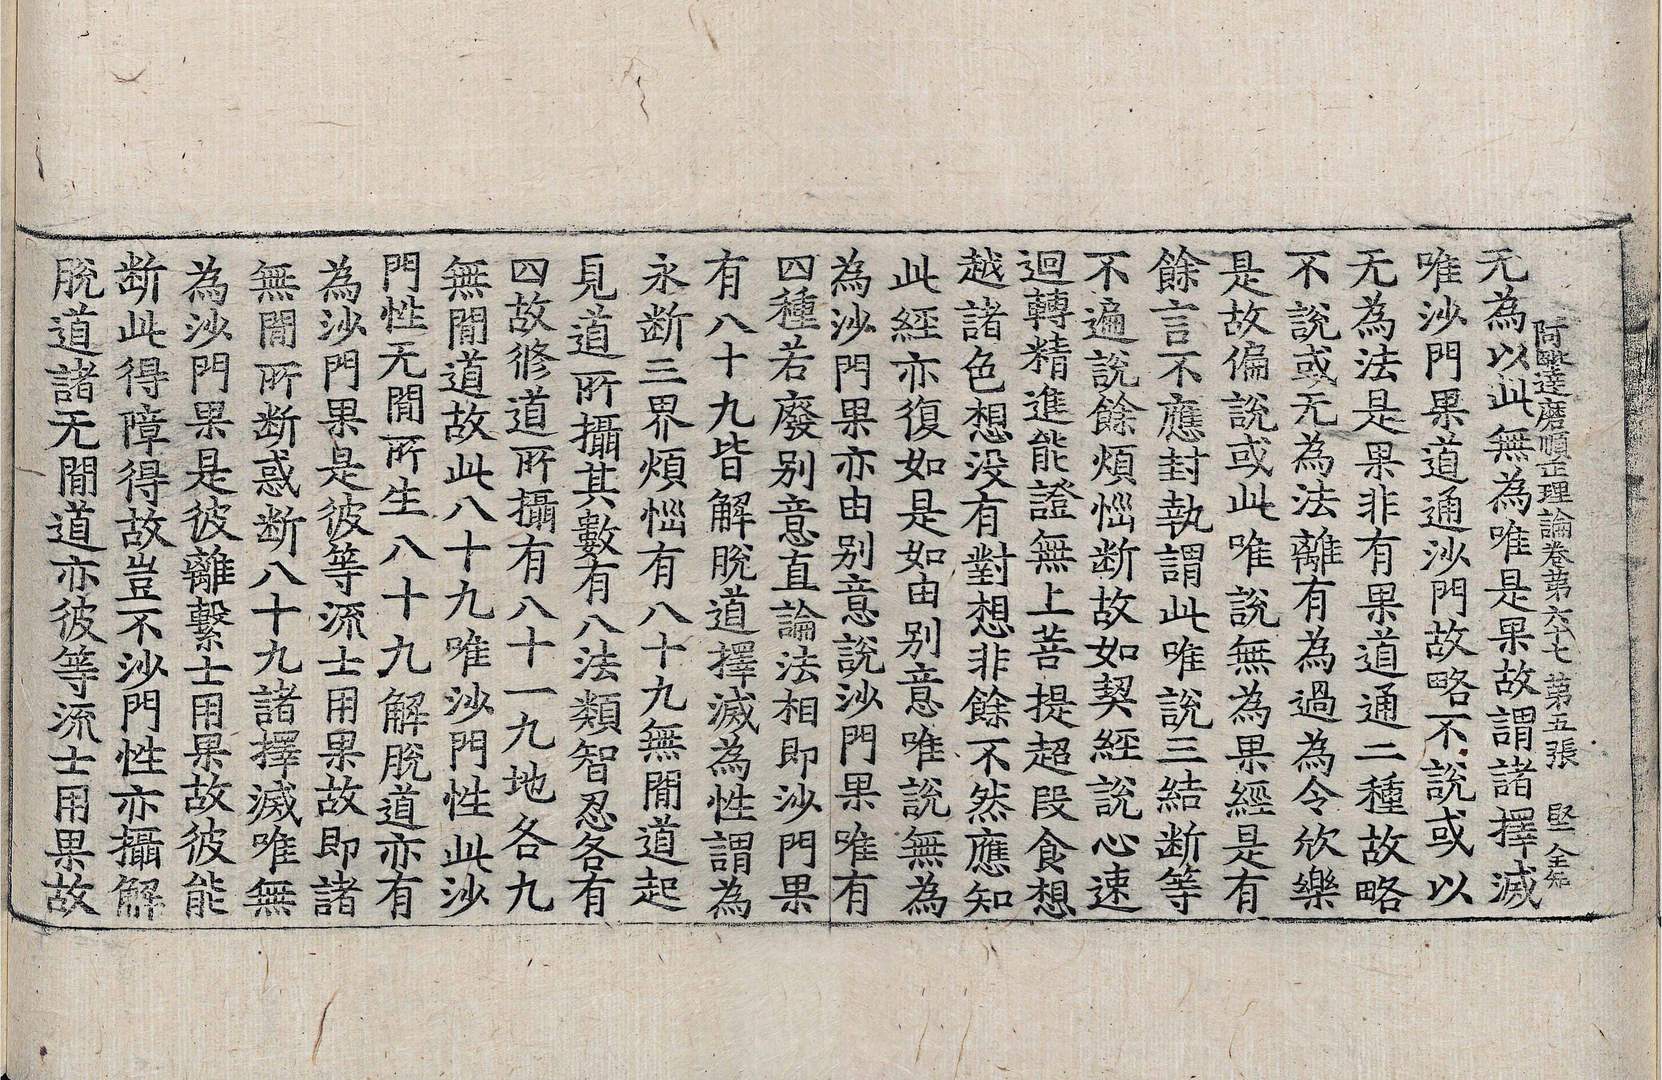 阿毗達磨順正理論卷第六十七 第五張 堅 全知
无為以此無為唯是果故謂諸擇滅
唯沙門果道通沙門故略不說或以
无為法是果非有果道通二種故略
不說或无為法離有為過為令欣樂
是故偏說或此唯說無為果經是有
餘言不應封執謂此唯說三結断等
不遍說餘煩惱断故如契經說心速
迴轉精進能證無上菩提超段食想
越諸色想没有對想非餘不然應知
此經亦復如是如由别意唯說無為
為沙門果亦由别意說沙門果唯有
四種若廢别意直論法相即沙門果
有八十九皆解脫道擇滅為性謂為
永断三界煩惱有八十九無間道起
見道所攝其數有八法類智忍各有
四故修道所攝有八十一九地各九
無間道故此八十九唯沙門性此沙
門性无間所生八十九解脫道亦有
為沙門果是彼等流士用果故即諸
無間所断惑断八十九諸擇滅唯無
為沙門果是彼離繫士用果故彼能
断此得障得故豈不沙門性亦攝解
脫道諸无間道亦彼等流士用果故